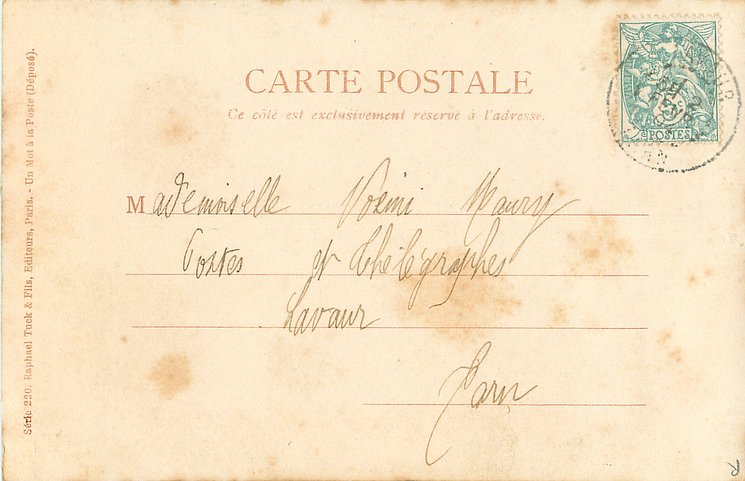 CARTE POSTALE
Ce côté est exclusivement réservé à l'adresse.
Mademoiselle Noémi Maury
Postes et Thélégraphes
Lavaur
Tarn
Série 220. Raphael Tuck & Fils, Editeurs, Paris. - Un Mot à la Poste (Déposé).
POSTES
R